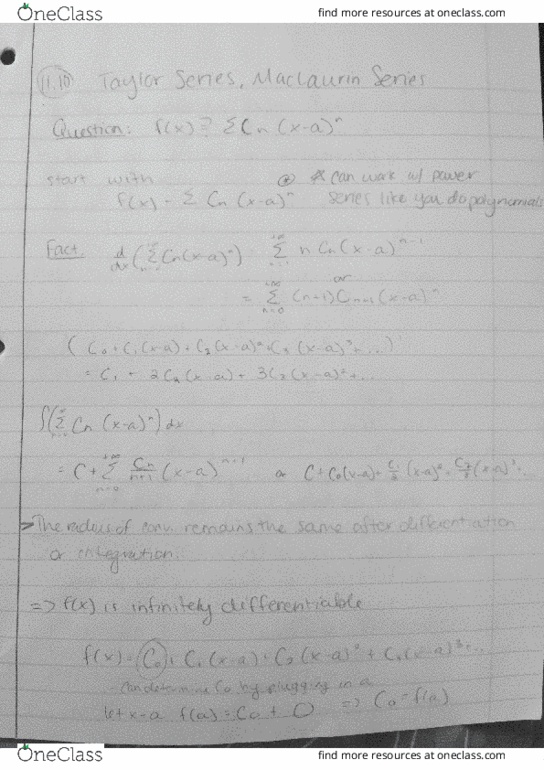 OneClass find more resources at oneclass.com
11.10 Taylor Series, Maclaurin Series
Question: f(x) ? Σ Cn (x-a)^n
start with @ * can work w/ power
f(x) = Σ Cn (x-a)^n series like you do polynomials
Fact d/dx (Σ Cn(x-a)^n) Σ n Cn (x-a)^n-1
or
= Σ n=0 +∞ (n+1) Cn+1 (x-a)^n
(C0 + C1(x-a) + C2(x-a)² + C3(x-a)³ + ...)'
= C1 + 2C2(x-a) + 3C3(x-a)² + ...
∫(Σ Cn (x-a)^n) dx
= C + Σ n=0 +∞ Cn/n+1 (x-a)^n+1 or C + C0(x-a) + C1/2 (x-a)² + C2/3 (x-a)³ ...
> The radius of conv. remains the same after differentiation
or integration.
=> f(x) is infinitely differentiable
f(x) = C0 + C1(x-a) + C2(x-a)² + C3(x-a)³ ...
can determine C0 by plugging in a
let x=a f(a) = C0 + 0 => C0 = f(a)
OneClass find more resources at oneclass.com